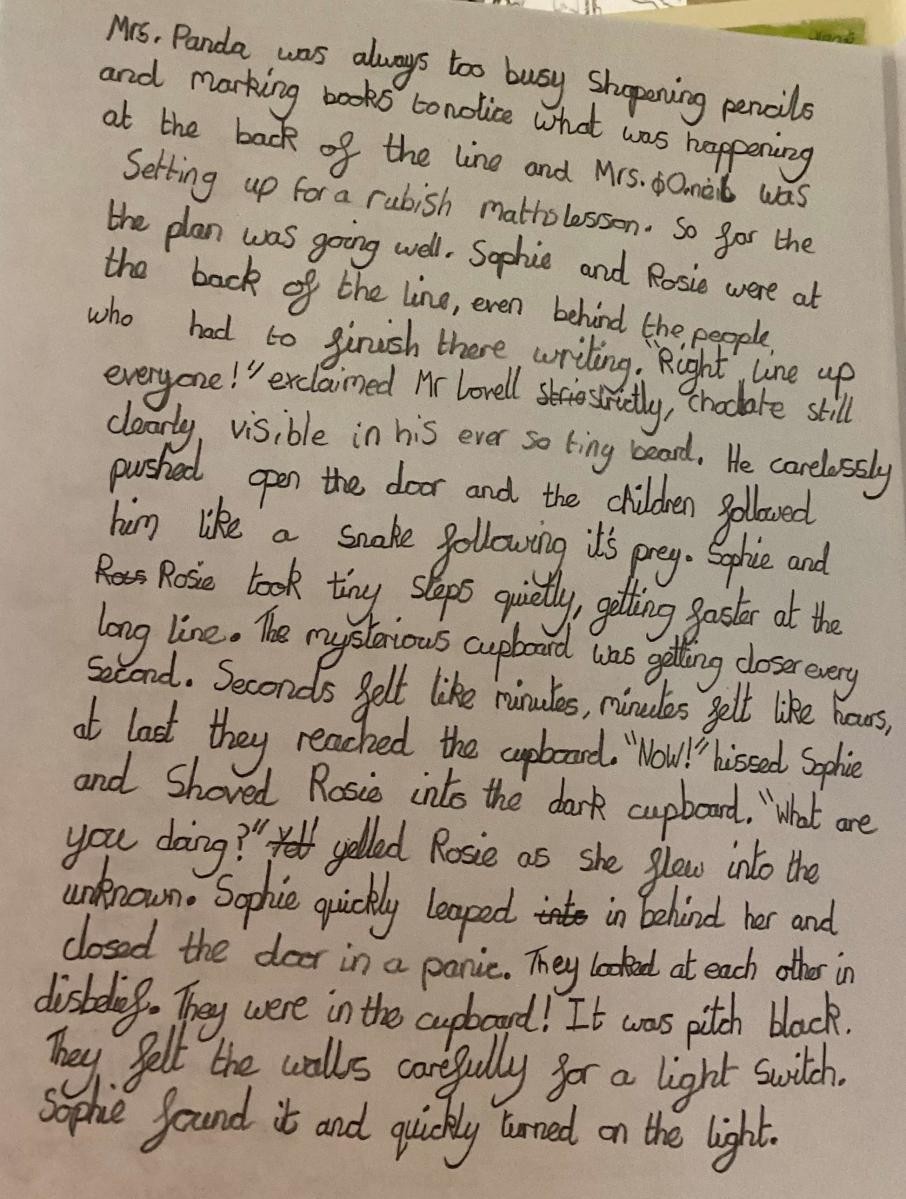 Mrs. Panda was always too busy Shopening pencils
and marking books to notice what was happening
at the back of the line and Mrs. was
Setting up for a rubish maths lesson. So far the
the plan was going well. Sophie and Rosie were at
the back of the line, even behind the people
who had to finish there writing. "Right line up
everyone!" exclaimed Mr Lovell strictly, choclate still
clearly visible in his ever so tiny beard. He carelessly
pushed open the door and the children followed
him like a snake following it's prey. Sophie and
Rosie took tiny steps quietly, getting faster at the
long line. The mysterious cupboard was getting closer every
Second. Seconds felt like minutes, minutes felt like hours,
at last they reached the cupboard. "Now!" hissed Sophie
and Shoved Rosie into the dark cupboard. "What are
you doing?" yelled Rosie as she flew into the
unknown. Sophie quickly leaped into in behind her and
closed the door in a panic. They looked at each other in
disbelief. They were in the cupboard! It was pitch black.
They felt the walls carefully for a light switch.
Sophie found it and quickly turned on the light.